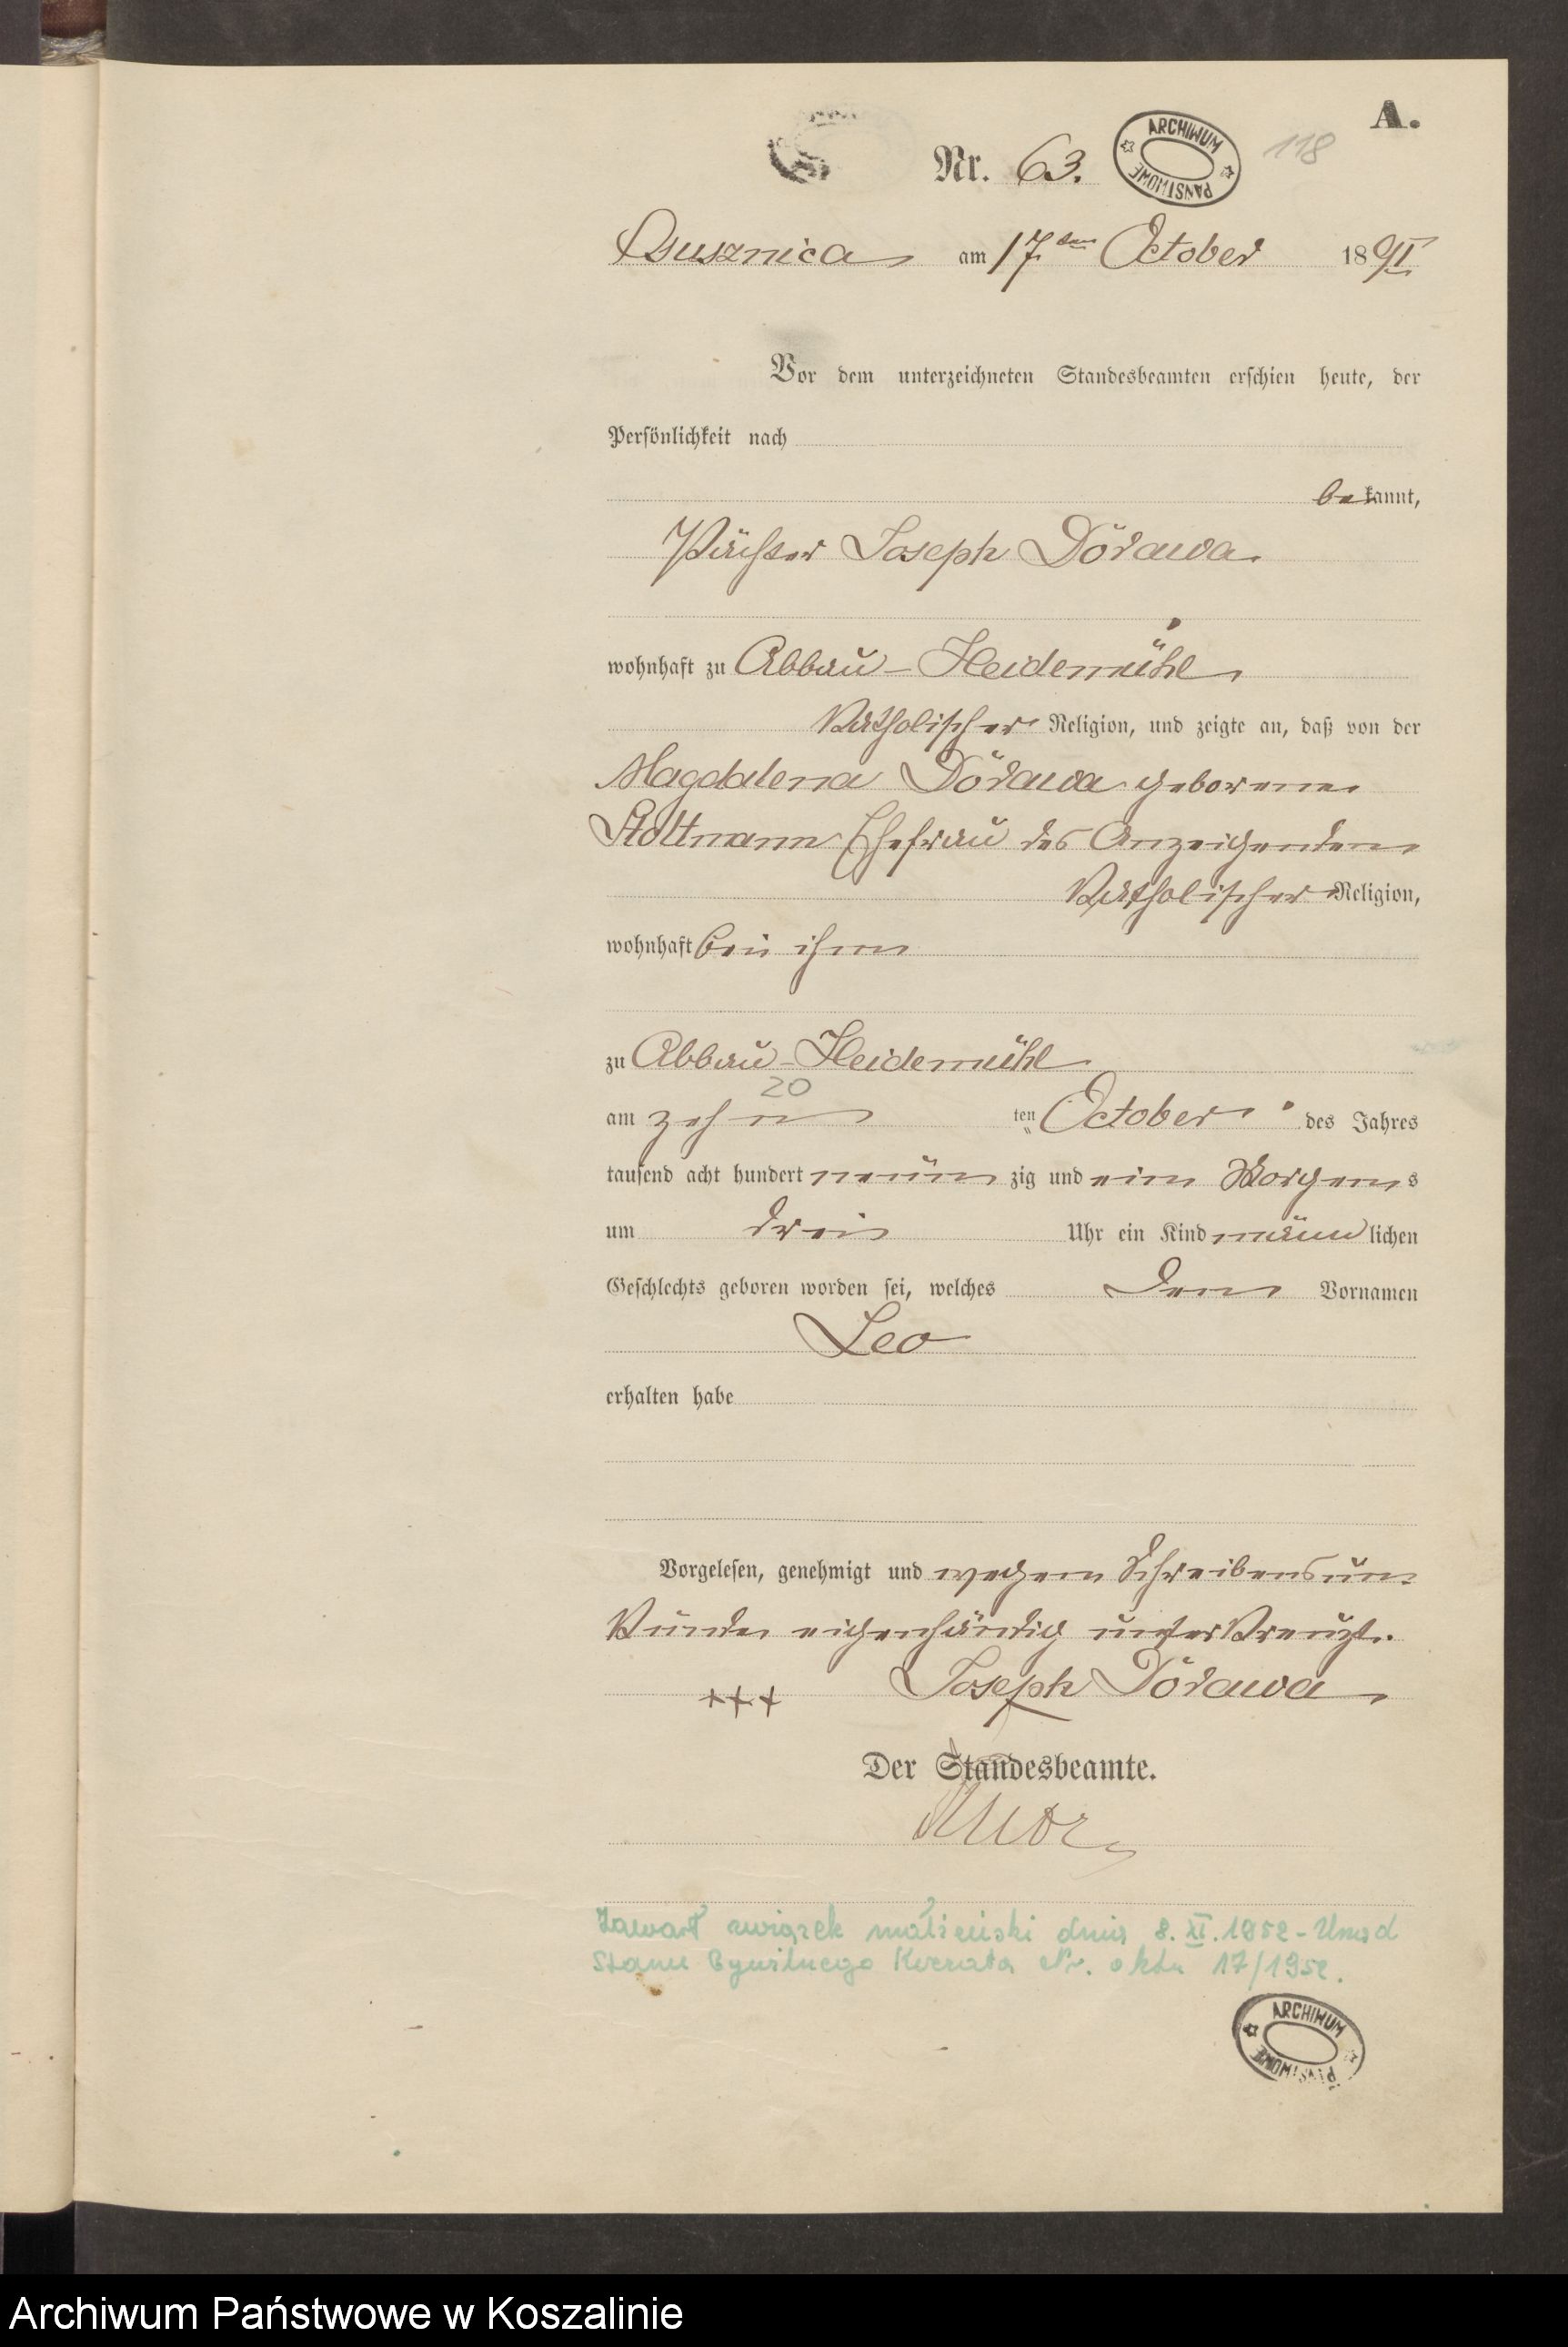 A.
Nr. 63.
ARCHIWUM PAŃSTWOWE
118
Ossusznica am 17ten October 1891
Vor dem unterzeichneten Standesbeamten erschien heute, der
Persönlichkeit nach
bekannt,
Pächter Joseph Dörawa
wohnhaft zu Abbau-Heidemühl
katholischer Religion, und zeigte an, daß von der
Magdalena Dörawa geborene
Stoltmann Ehefrau des Anzeigenden
katholischer Religion,
wohnhaft bei ihm
zu Abbau-Heidemühl
20
am zehn ten October des Jahres
tausend acht hundert neun zig und ein Morgens
um drei Uhr ein Kind männlichen
Geschlechts geboren worden sei, welches den Vornamen
Leo
erhalten habe
Vorgelesen, genehmigt und wegen Schreibensun-
kunde eigenhändig unterkreuzt.
+++ Joseph Dörawa
Der Standesbeamte.
Zawarł związek małżeński dnia 8. XI. 1952 - Urząd
Stanu Cywilnego Nr. aktu 17/1952.
ARCHIWUM PAŃSTWOWE
Archiwum Państwowe w Koszalinie